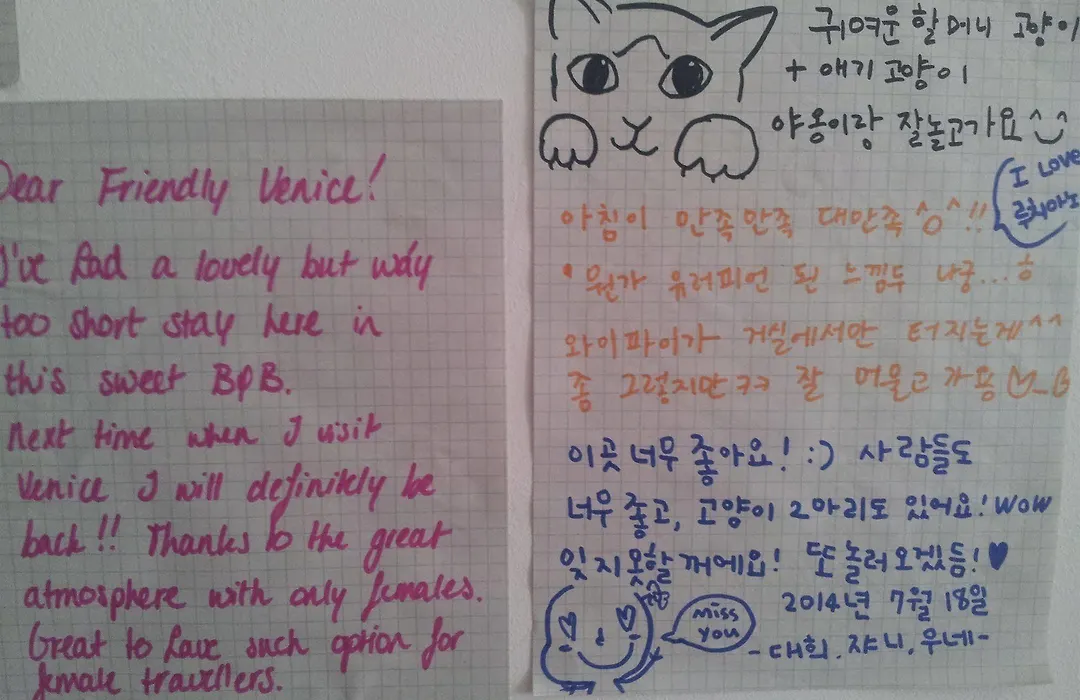 Dear Friendly Venice!
I've had a lovely but way
too short stay here in
this sweet B&B.
Next time when I visit
Venice I will definitely be
back!! Thanks to the great
atmosphere with only females.
Great to have such option for
female travellers.
귀여운 할머니 고양이
+ 애기 고양이
야옹이랑 잘놀고가요^‿^
I LOVE
루치아노
아침이 만족만족 대만족^0^!!
뭔가 유러피언 된 느낌두 나궁...ㅎ
와이파이가 거실에서만 터지는게^^
좀 그렇지만ㅋㅋ 잘 머물고 가용
이곳 너무 좋아요! :) 사람들도
너무 좋고, 고양이 2마리도 있어요! WOW
잊지 못할 꺼에요! 또 놀러오겠듬!♥
2014년 7월 18일
miss
you
-대희, 쟈니, 우네-